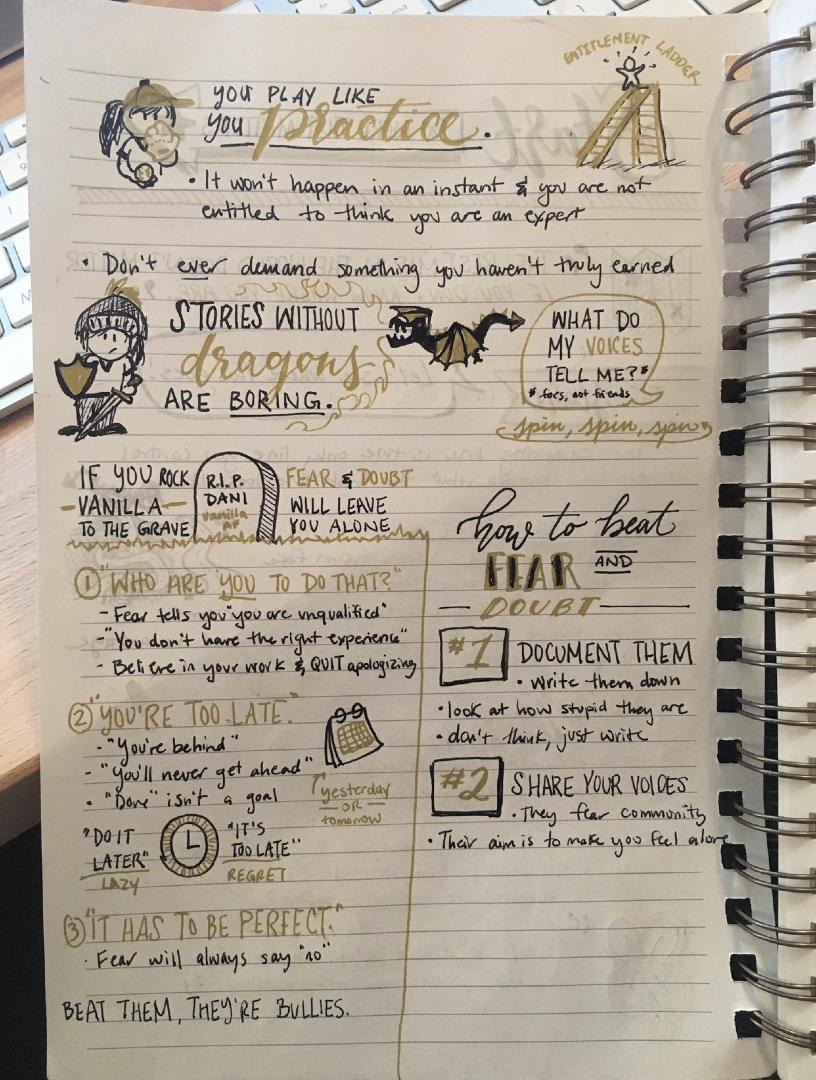 ENTITLEMENT LADDER
YOU PLAY LIKE
YOU practice.
• It won't happen in an instant & you are not
entitled to think you are an expert
• Don't ever demand something you haven't truly earned
STORIES WITHOUT
dragons
ARE BORING.
WHAT DO
MY VOICES
TELL ME?*
* foes, not friends
spin, spin, spin
IF YOU ROCK
—VANILLA—
TO THE GRAVE
R.I.P.
DANI
vanilla
AF
FEAR & DOUBT
WILL LEAVE
YOU ALONE
① "WHO ARE YOU TO DO THAT?"
- Fear tells you "you are unqualified"
- "You don't have the right experience"
- Believe in your work & QUIT apologizing
② "YOU'RE TOO LATE."
- "You're behind"
- "You'll never get ahead"
• "Done" isn't a goal
yesterday
— OR —
tomorrow
"DO IT
LATER"
LAZY
"IT'S
TOO LATE"
REGRET
③ "IT HAS TO BE PERFECT."
• Fear will always say "no"
BEAT THEM, THEY'RE BULLIES.
how to beat
FEAR AND
— DOUBT —
#1 DOCUMENT THEM
• Write them down
• look at how stupid they are
• don't think, just write
#2 SHARE YOUR VOICES
• They fear community
• Their aim is to make you feel alone